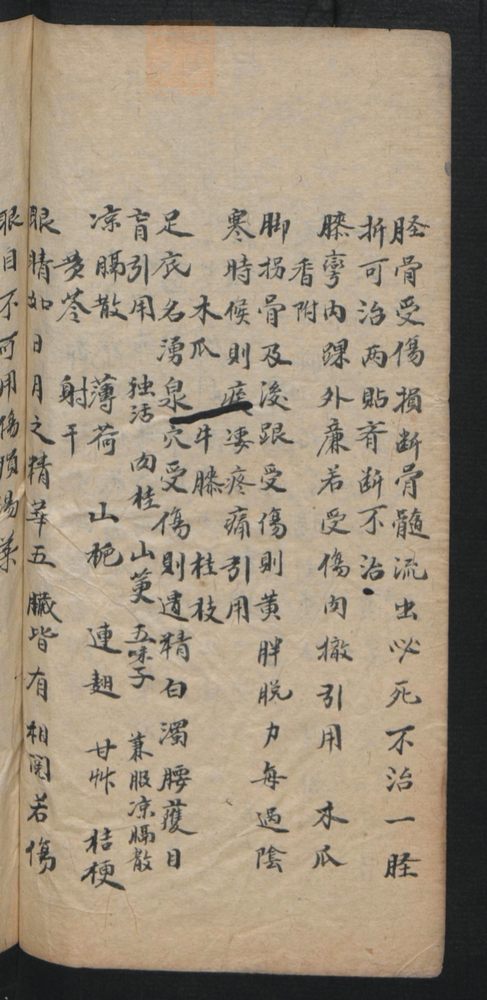 胫骨受傷損断骨髓流出必死不治一胫
折可治両貼脊断不治
膝穹内踝外廉若受傷肉撤引用 木瓜
香附
脚拐骨及後跟受傷則黄胖脱力每遇陰
寒時候則疼凄疼痛引用
木瓜 牛膝 桂枝
足底名湧泉穴受傷則遺精白濁腰蔆目
盲引用 独活 肉桂 山萸 五味子 兼服凉膈散
凉膈散 薄荷 山栀 連翹 甘艸 桔梗
黄芩 射干
眼睛如日月之精華五臓皆有相関若傷
眼目不可用傷損湯薬